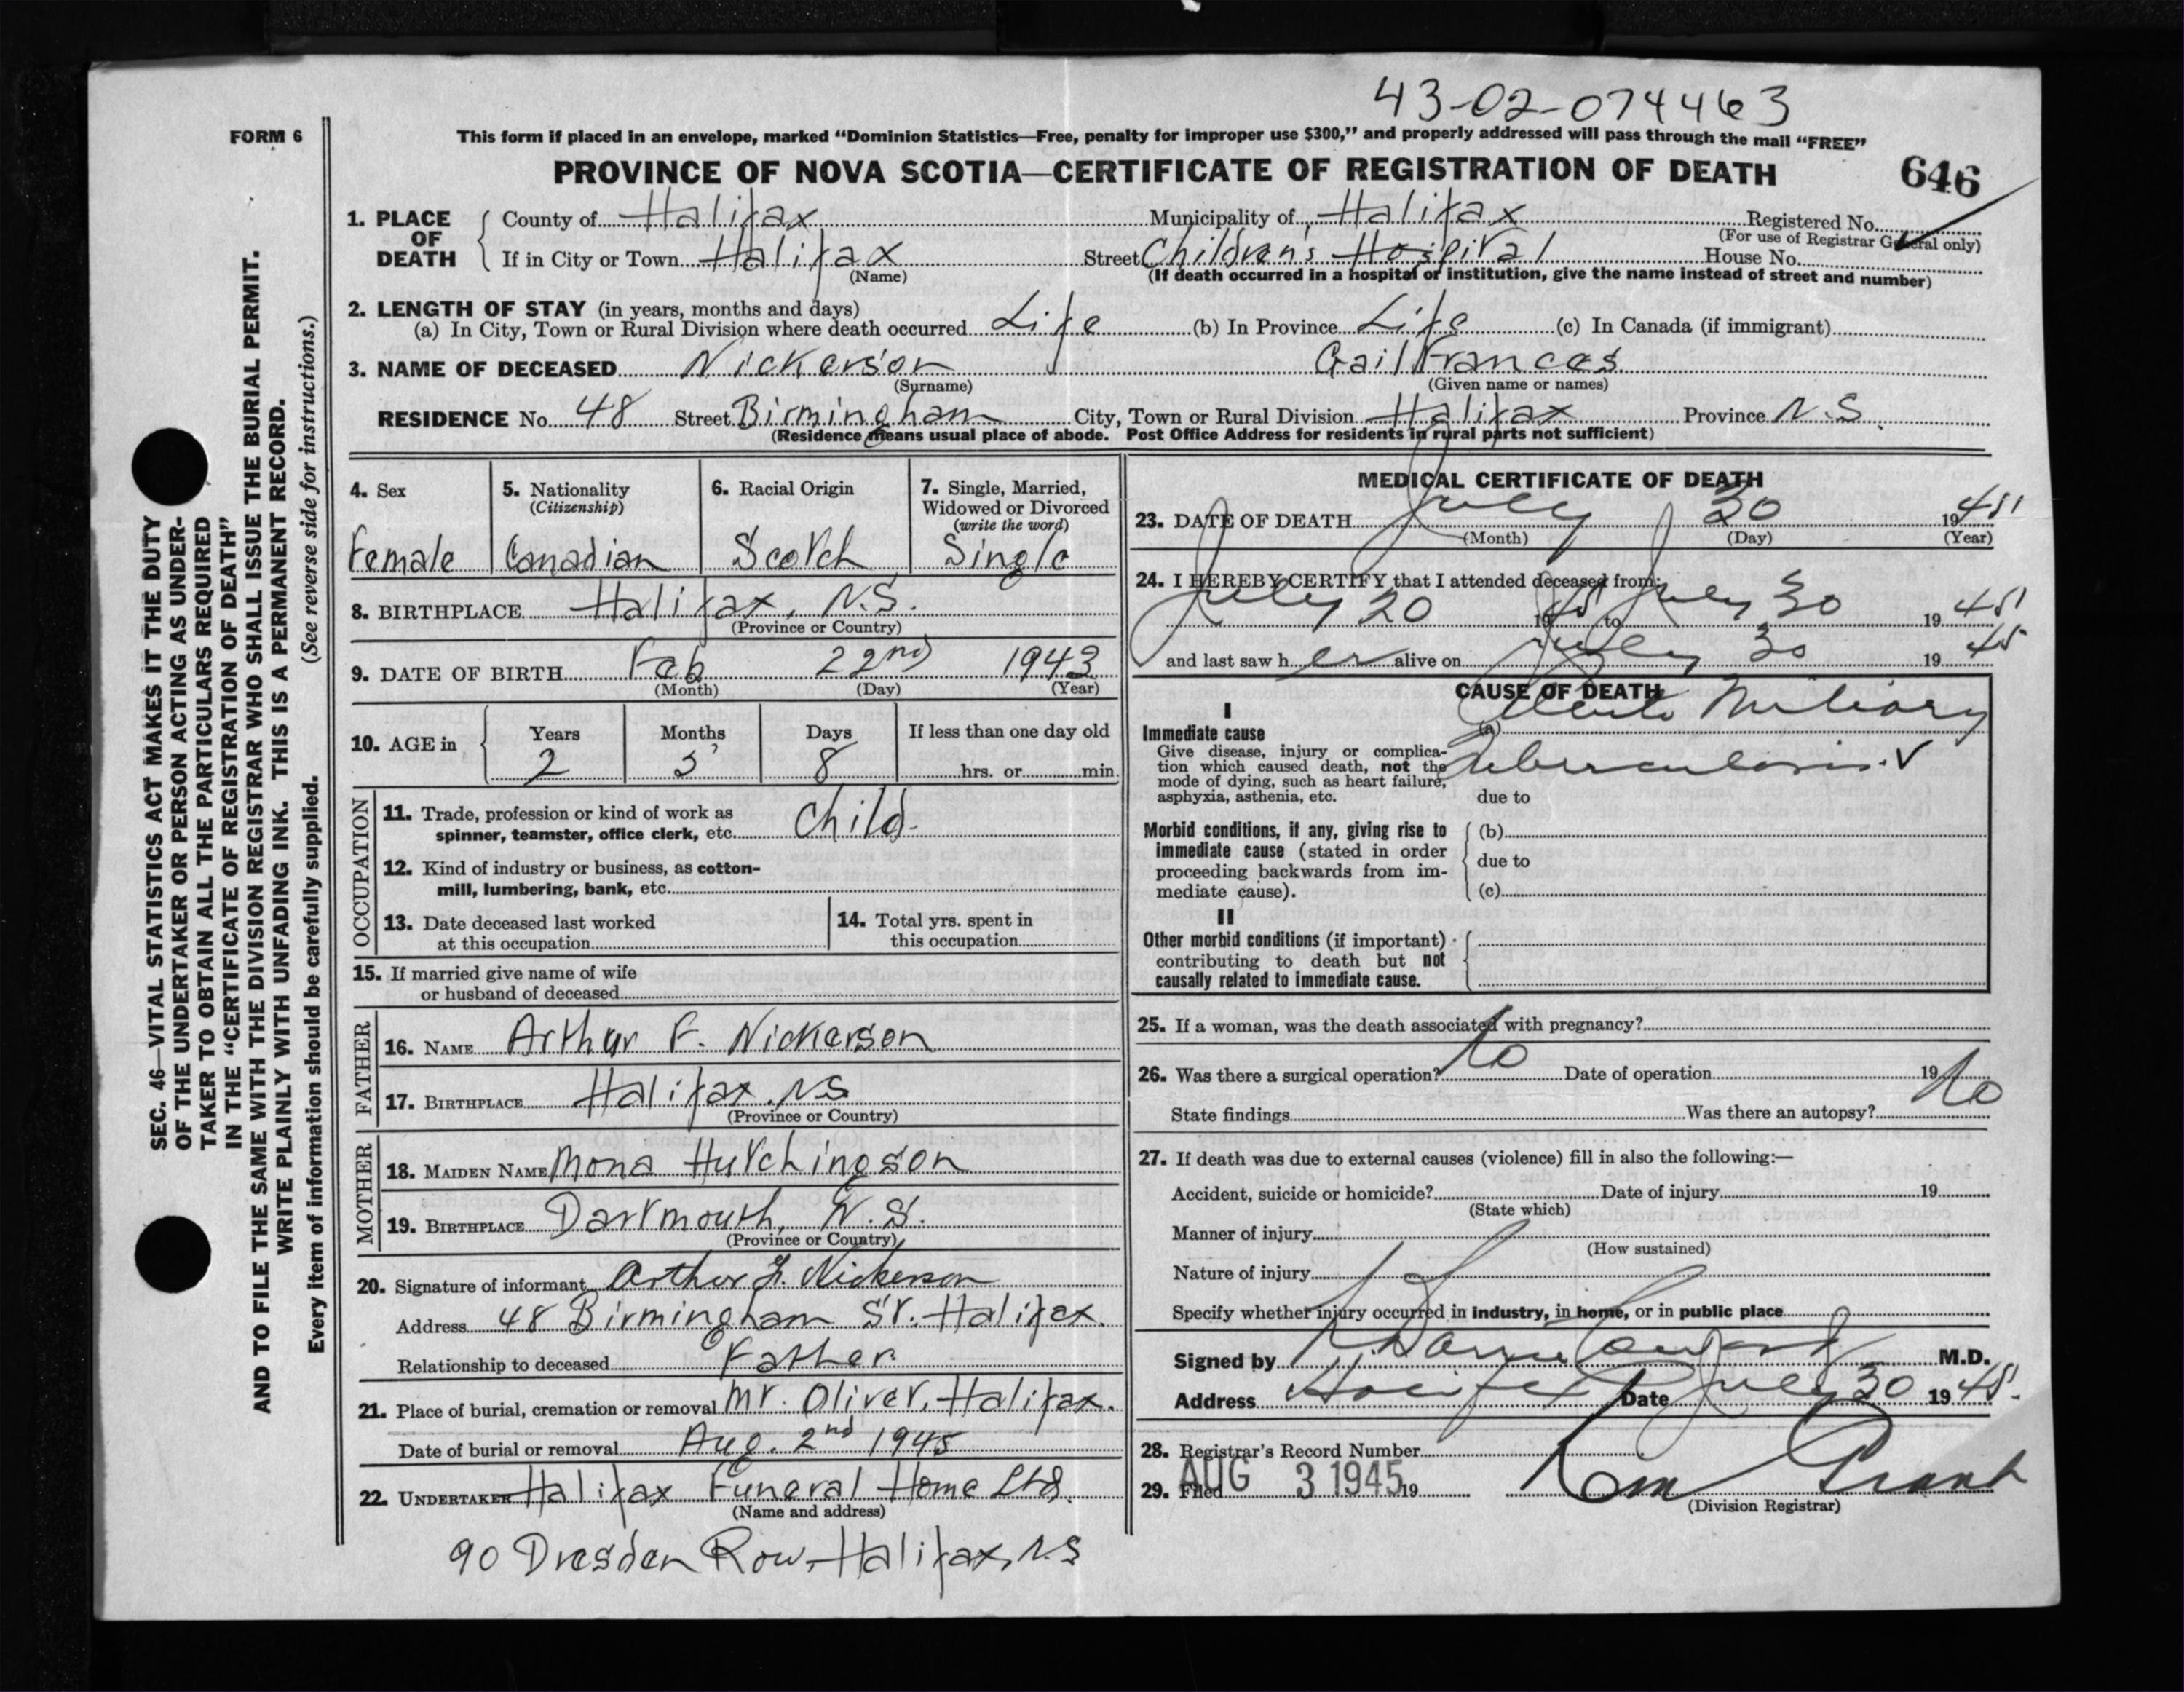 43-02-074463
FORM 6
This form if placed in an envelope, marked "Dominion Statistics—Free, penalty for improper use $300," and properly addressed will pass through the mail "FREE"
PROVINCE OF NOVA SCOTIA—CERTIFICATE OF REGISTRATION OF DEATH
646
1. PLACE OF DEATH
County of Halifax Municipality of Halifax Registered No.
(For use of Registrar General only)
If in City or Town Halifax Street Children's Hospital House No.
(Name) (If death occurred in a hospital or institution, give the name instead of street and number)
2. LENGTH OF STAY (in years, months and days)
(a) In City, Town or Rural Division where death occurred Life (b) In Province Life (c) In Canada (if immigrant)
3. NAME OF DECEASED Nickerson Gail Frances
(Surname) (Given name or names)
RESIDENCE No. 48 Street Birmingham City, Town or Rural Division Halifax Province N.S.
(Residence means usual place of abode. Post Office Address for residents in rural parts not sufficient)
SEC. 46—VITAL STATISTICS ACT MAKES IT THE DUTY
OF THE UNDERTAKER OR PERSON ACTING AS UNDER-
TAKER TO OBTAIN ALL THE PARTICULARS REQUIRED
IN THE "CERTIFICATE OF REGISTRATION OF DEATH"
AND TO FILE THE SAME WITH THE DIVISION REGISTRAR WHO SHALL ISSUE THE BURIAL PERMIT.
WRITE PLAINLY WITH UNFADING INK. THIS IS A PERMANENT RECORD.
Every item of information should be carefully supplied. (See reverse side for instructions.)
4. Sex
Female
5. Nationality
(Citizenship)
Canadian
6. Racial Origin
Scotch
7. Single, Married,
Widowed or Divorced
(write the word)
Single
8. BIRTHPLACE Halifax, N.S.
(Province or Country)
9. DATE OF BIRTH Feb 22nd 1943
(Month) (Day) (Year)
10. AGE in
Years Months Days If less than one day old
2 5 8 hrs. or min.
OCCUPATION
11. Trade, profession or kind of work as
spinner, teamster, office clerk, etc. Child.
12. Kind of industry or business, as cotton-
mill, lumbering, bank, etc.
13. Date deceased last worked
at this occupation
14. Total yrs. spent in
this occupation
15. If married give name of wife
or husband of deceased
FATHER
16. NAME Arthur F. Nickerson
17. BIRTHPLACE Halifax, N.S.
(Province or Country)
MOTHER
18. MAIDEN NAME Mona Hutchingson
19. BIRTHPLACE Dartmouth, N.S.
(Province or Country)
20. Signature of informant Arthur F. Nickerson
Address 48 Birmingham St. Halifax.
Relationship to deceased Father.
21. Place of burial, cremation or removal Mt. Oliver, Halifax.
Date of burial or removal Aug. 2nd 1945
22. UNDERTAKER Halifax Funeral Home Ltd.
(Name and address)
90 Dresden Row, Halifax, N.S
MEDICAL CERTIFICATE OF DEATH
23. DATE OF DEATH July 30 1945
(Month) (Day) (Year)
24. I HEREBY CERTIFY that I attended deceased from:
July 20 1945 to July 30 1945
and last saw her alive on July 30 1945
CAUSE OF DEATH
I
Immediate cause
Give disease, injury or complica-
tion which caused death, not the
mode of dying, such as heart failure,
asphyxia, asthenia, etc.
(a) Acute Miliary
Tuberculosis.
due to
Morbid conditions, if any, giving rise to
immediate cause (stated in order
proceeding backwards from im-
mediate cause).
(b)
due to
(c)
II
Other morbid conditions (if important)
contributing to death but not
causally related to immediate cause.
25. If a woman, was the death associated with pregnancy?
26. Was there a surgical operation? No Date of operation 19
State findings Was there an autopsy? No
27. If death was due to external causes (violence) fill in also the following:—
Accident, suicide or homicide? Date of injury 19
(State which)
Manner of injury
(How sustained)
Nature of injury
Specify whether injury occurred in industry, in home, or in public place
Signed by M.D.
Address Halifax Date July 30 1945.
28. Registrar's Record Number
29. Filed AUG 3 1945 19
Grant
(Division Registrar)